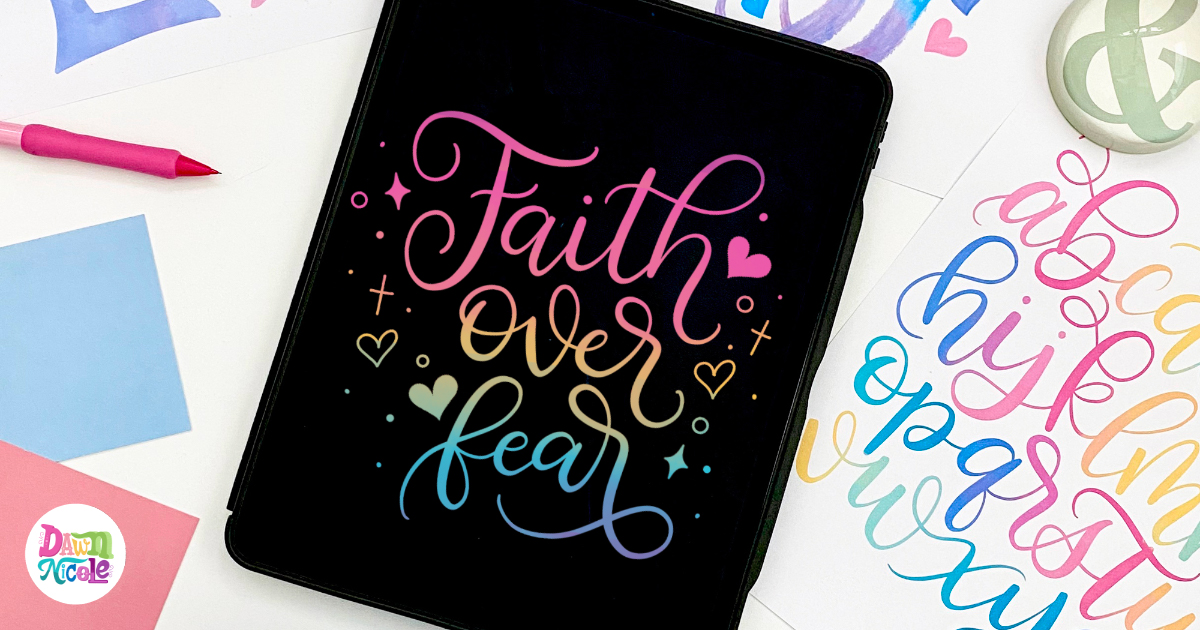 Faith
over
fear
&
abca
hijk
lm
opqrstu
vwxy
Dawn
Nicole